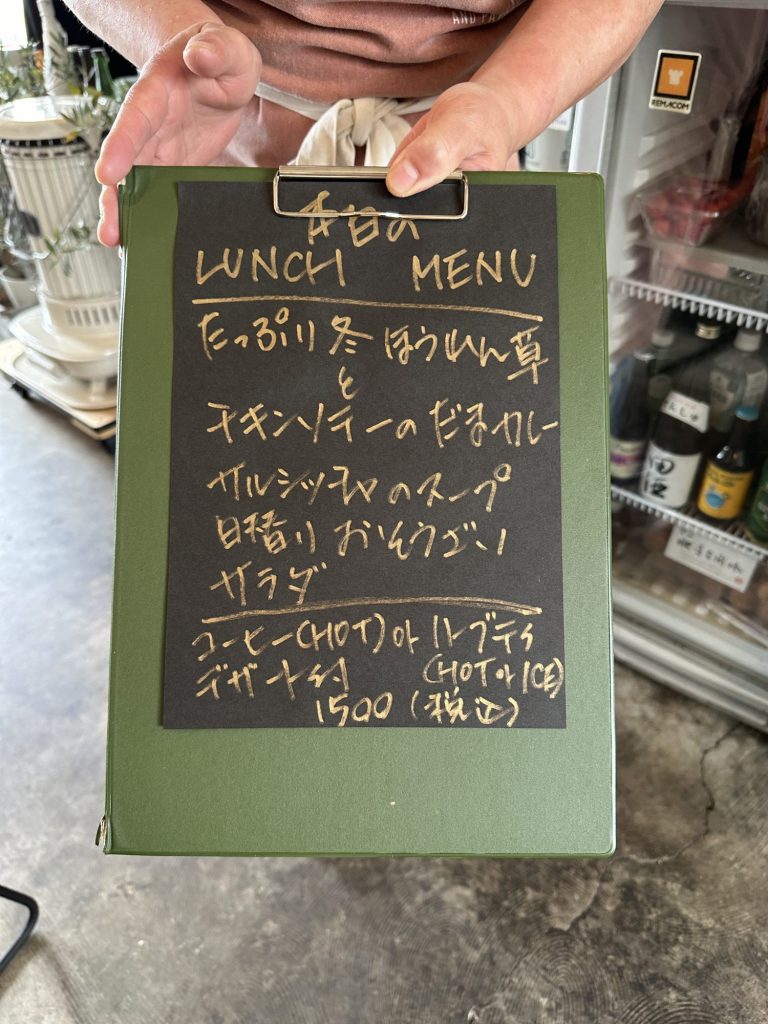 AND PA
REMACOM
本日の
LUNCH MENU
たっぷり冬ほうれん草
と
チキンソテーのだまカレー
サルシッチャのスープ
日替り おそうざい
サラダ
コーヒー(HOT) or ハーブティ
デザート付 (HOT or ICE)
1500(税込)